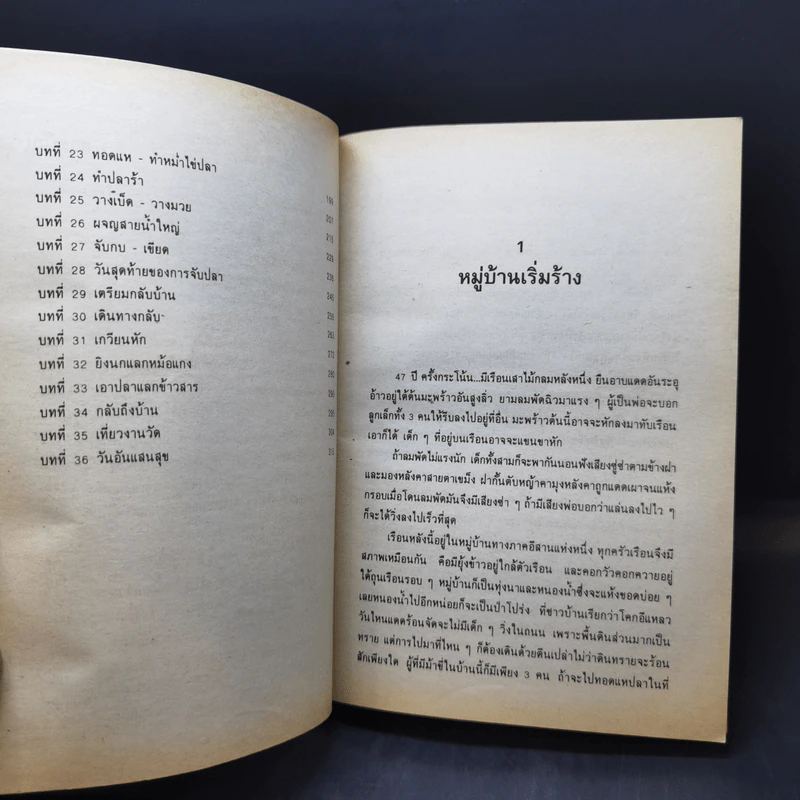 บทที่ 23 ทอดแห - ทำหม่ำไข่ปลา
บทที่ 24 ทำปลาร้า
บทที่ 25 วางเบ็ด - วางมวย
บทที่ 26 ผจญสายน้ำใหญ่
บทที่ 27 จับกบ - เขียด
บทที่ 28 วันสุดท้ายของการจับปลา
บทที่ 29 เตรียมกลับบ้าน
บทที่ 30 เดินทางกลับ
บทที่ 31 เกวียนหัก
บทที่ 32 ยิงนกแลกหม้อแกง
บทที่ 33 เอาปลาแลกข้าวสาร
บทที่ 34 กลับถึงบ้าน
บทที่ 35 เที่ยวงานวัด
บทที่ 36 วันอันแสนสุข
1
หมู่บ้านเริ่มร้าง
47 ปี ครั้งกระโน้น...มีเรือนเสาไม้กลมหลังหนึ่ง ยืนอาบแดดอันระอุ
อ้าวอยู่ใต้ต้นมะพร้าวอันสูงลิ่ว ยามลมพัดฉิวมาแรง ๆ ผู้เป็นพ่อจะบอก
ลูกเล็กทั้ง 3 คนให้รีบลงไปอยู่ที่อื่น มะพร้าวต้นนี้อาจจะหักลงมาทับเรือน
เอาก็ได้ เด็ก ๆ ที่อยู่บนเรือนอาจจะแขนขาหัก
ถ้าลมพัดไม่แรงนัก เด็กทั้งสามก็จะพากันนอนฟังเสียงซู่ซ่าตามข้างฝา
และมองหลังคาสายตาเขม็ง ฝากั้นตับหญ้าคามุงหลังคาถูกแดดเผาจนแห้ง
กรอบเมื่อโดนลมพัดมันจึงมีเสียงซ่า ๆ ถ้ามีเสียงพ่อบอกว่าแล่นลงไปไว ๆ
ก็จะได้วิ่งลงไปเร็วที่สุด
เรือนหลังนี้อยู่ในหมู่บ้านทางภาคอีสานแห่งหนึ่ง ทุกครัวเรือนจึงมี
สภาพเหมือนกัน คือมียุ้งข้าวอยู่ใกล้ตัวเรือน และคอกวัวคอกควายอยู่
ใต้ถุนเรือนรอบ ๆ หมู่บ้านก็เป็นทุ่งนาและหนองน้ำซึ่งจะแห้งขอดบ่อย ๆ
เลยหนองน้ำไปอีกหน่อยก็จะเป็นป่าโปร่ง ที่ชาวบ้านเรียกว่าโคกอีแหลว
วันไหนแดดร้อนจัดจะไม่มีเด็ก ๆ วิ่งในถนน เพราะพื้นดินส่วนมากเป็น
ทราย แต่การไปมาที่ไหน ๆ ก็ต้องเดินด้วยตีนเปล่าไม่ว่าดินทรายจะร้อน
สักเพียงใด ผู้ที่มีม้าขี่ในบ้านนี้ก็มีเพียง 3 คน ถ้าจะไปทอดแหปลาในที่